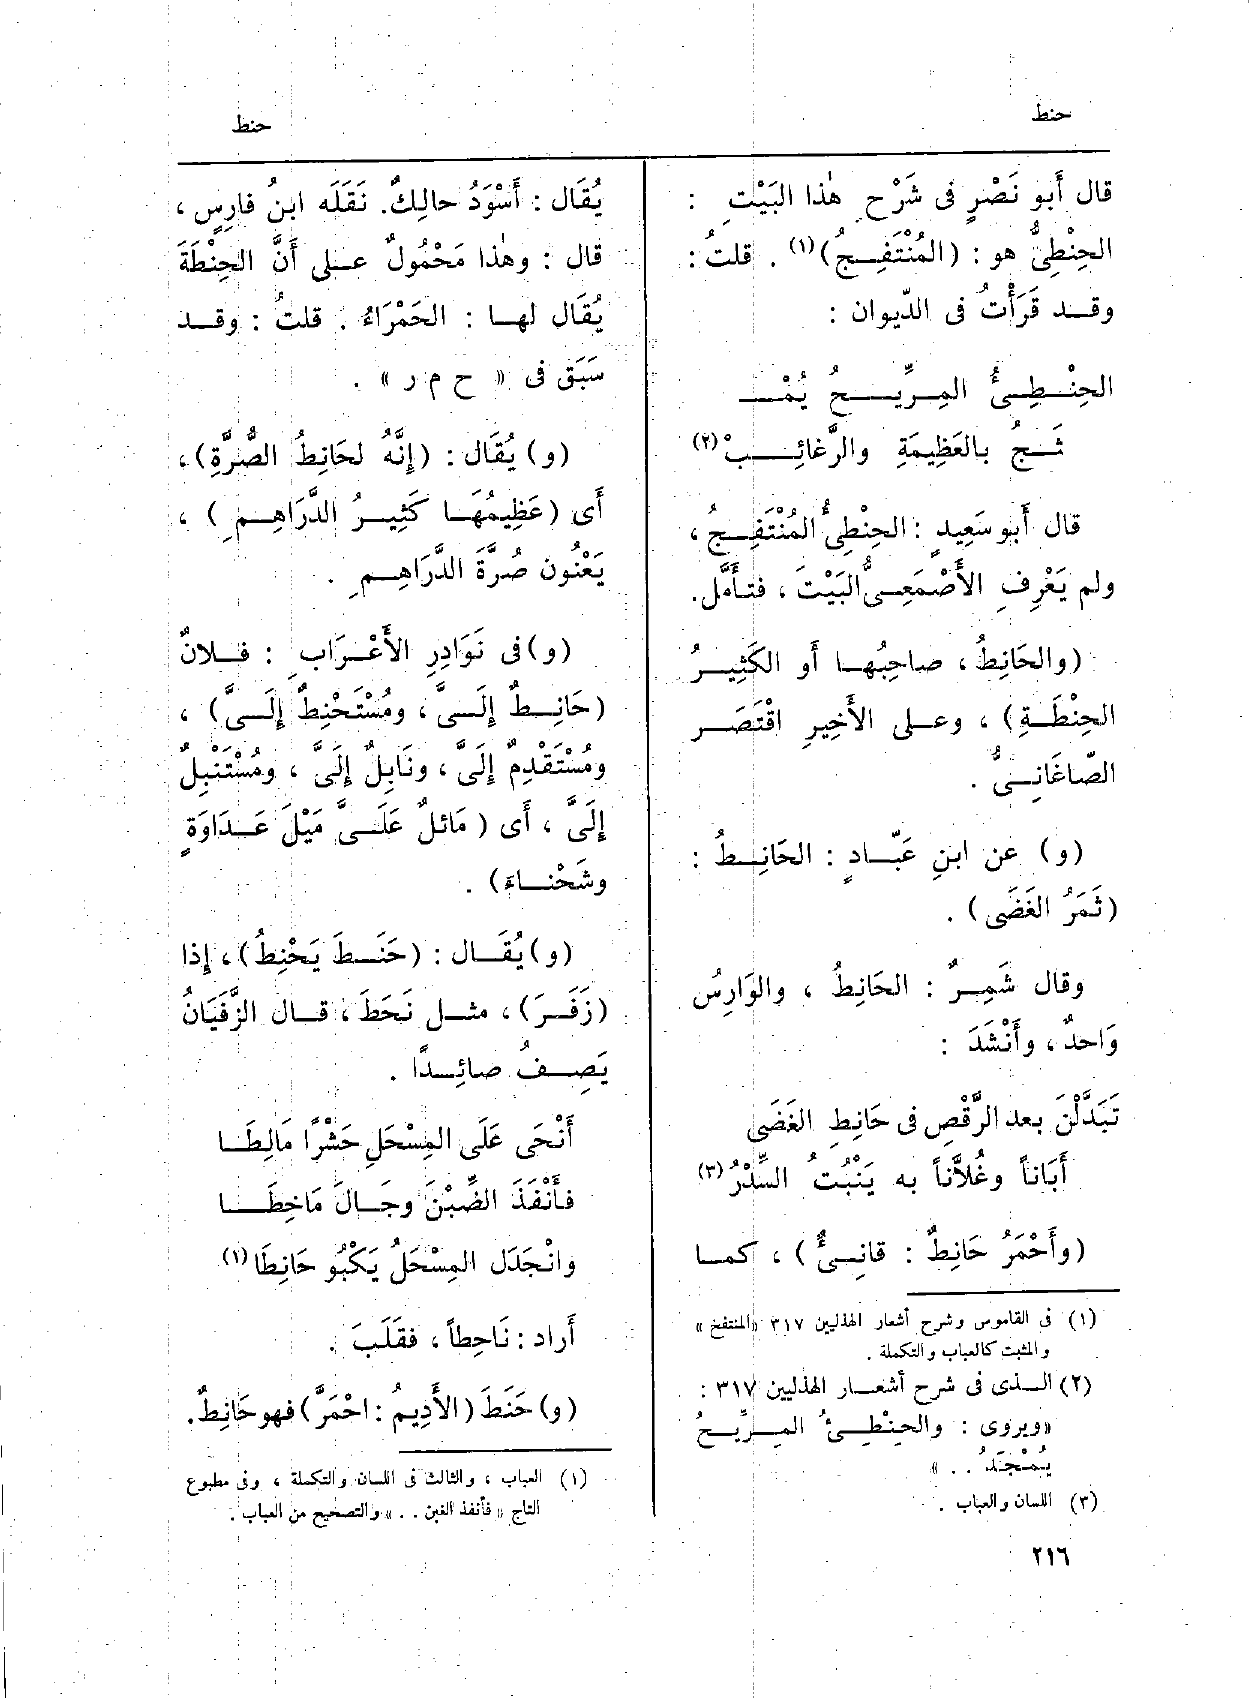 حنط
حنط
قال أَبو نَصْرٍ فى شَرْحِ هٰذا البَيْتِ :
الحِنْطِئُّ هو : (المُنْتَفِـجُ)(١) . قلتُ :
وقـد قَرَأْتُ فى الدّيوان :
الحِنْـطِـئُ المِـرِّيـحُ يُمْـ
ـثَـجُ بالعَظِيمَةِ والرَّغائِـبْ(٢)
قال أَبو سَعِيدٍ : الحِنْطِئُ المُنْتَفِـجُ ،
ولم يَعْرِفِ الأَصْمَعِـىُّ البَيْتَ ، فتـأَمَّل.
(والحَانِطُ ، صاحِبُهـا أو الكَثِيـرُ
الحِنْطَـةِ) ، وعـلى الأَخِيرِ اقْتَصَـر
الصّاغَانِـىُّ .
(و) عن ابنِ عَبّـادٍ : الحَانِـطُ :
(ثَمَرُ الغَضَى) .
وقال شَمِـرٌ : الحَانِطُ ، والوَارِسُ
وَاحدٌ ، وأَنْشَدَ :
تَبَدَّلْنَ بعد الرَّقْصِ فى حَانِطِ الغَضَى
أَبَاناً وغُلاَّناً به يَنْبُتُ السِّدْرُ(٣)
(وأَحْمَرُ حَانِطٌ : قانِـئٌ) ، كمـا
(١) فى القاموس وشرح أشعار الهذليين ٣١٧ «المنتفخ»
والمثبت كالعباب والتكملة .
(٢) الـذى فى شرح أشعـار الهذليين ٣١٧ :
«ويروى : والحِنْطِـئُ المِـرِّيـحُ
يُمْـجَـدُ . . »
(٣) اللسان والعباب .
٢١٦
يُقَال : أَسْوَدُ حالِكٌ. نَقَلَه ابنُ فارِسٍ ،
قال : وهٰذا مَحْمُولٌ عـلى أَنَّ الحِنْطَةَ
يُقَال لهـا : الحَمْرَاءُ . قلتُ : وقـد
سَبَق فى « ح م ر » .
(و) يُقَال : (إِنَّهُ لحَانِطُ الصُّرَّةِ) ،
أَى (عَظِيمُهَـا كَثِيـرُ الدَّرَاهِـمِ ) ،
يَعْنُون صُرَّةَ الدَّرَاهِـمِ .
(و) فى نَوَادِرِ الأَعْـرَابِ : فـلانٌ
(حَانِـطٌ إِلَـىَّ ، ومُسْتَحْنِطٌ إِلَـىَّ) ،
ومُسْتَقْدِمٌ إِلَىَّ ، ونَابِلٌ إِلَىَّ ، ومُسْتَنْبِلٌ
إِلَىَّ ، أَى ( مَائلٌ عَلَـىَّ مَيْلَ عَـدَاوَةٍ
وشَحْنـاءَ) .
(و) يُقَـال : (حَنَـطَ يَحْنِطُ) ، إِذا
(زَفَـرَ) ، مثـل نَحَطَ ، قـال الزَّفَيَانُ
يَصِـفُ صائِـدًا .
أَنْحَى عَلَى المِسْحَلِ حَشْرًا مَالِطَـا
فأَنْفَذَ الضِّبْنَ وجَـالَ مَاخِطَـا
وانْجَدَل المِسْحَلُ يَكْبُو حَانِطَا(١)
أَراد : نَاحِطاً ، فقَلَبَ .
(و) حَنَطَ (الأَدِيمُ : احْمَرَّ) فهو حَانِطٌ.
(١) العباب ، والثالث فى اللسان والتكملة ، وفى مطبوع
التاج « فأنفذ الغبن . . » والتصحيح من العباب .